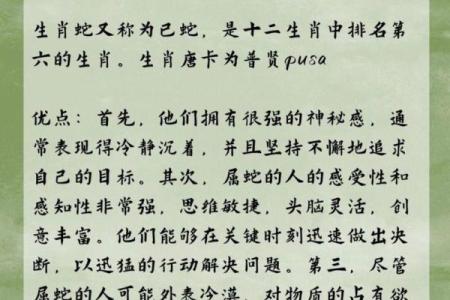 生肖蛇又称为已蛇，是十二生肖中排名第
六的生肖。生肖唐卡为普贤pusa
优点：首先，他们拥有很强的神秘感，通
常表现得冷静沉着，并且坚持不懈地追求
自己的目标。其次，属蛇的人的感受性和
感知性非常强，思维敏捷，头脑灵活，创
意丰富。他们能够在关键时刻迅速做出决
断，以迅猛的行动解决问题。第三，尽管
属蛇的人可能外表冷漠，对物质的占有欲